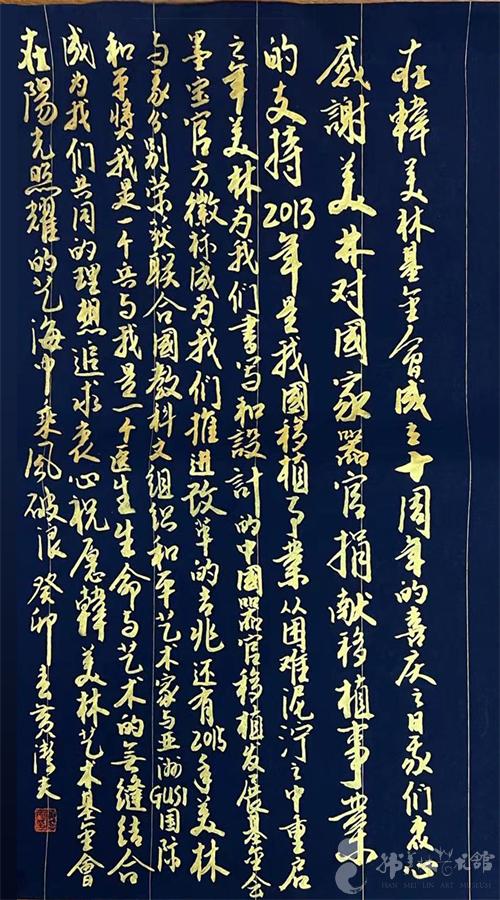 在韓美林基金會成立十周年的喜庆之日我们衷心
感謝美林对國家器官捐献移植事業
的支持2013年是我國移植事業从困难泥泞之中重启
之年美林为我们書写和設计的中國器官移植发展基金会
墨宝官方徽标成为我们推进改革的吉兆还有2015年美林
与我分别荣获联合國教科文组织和平艺术家与亚洲GUSI国际
和平奖我是一个兵与我是一个医生生命与艺术的無缝结合
成为我们共同的理想追求衷心祝愿韓美林艺术基金會
在陽光照耀的艺海中乘風破浪 癸卯春黄潔夫
韩美林艺术館
HAN MEI LIN ART MUSEUM